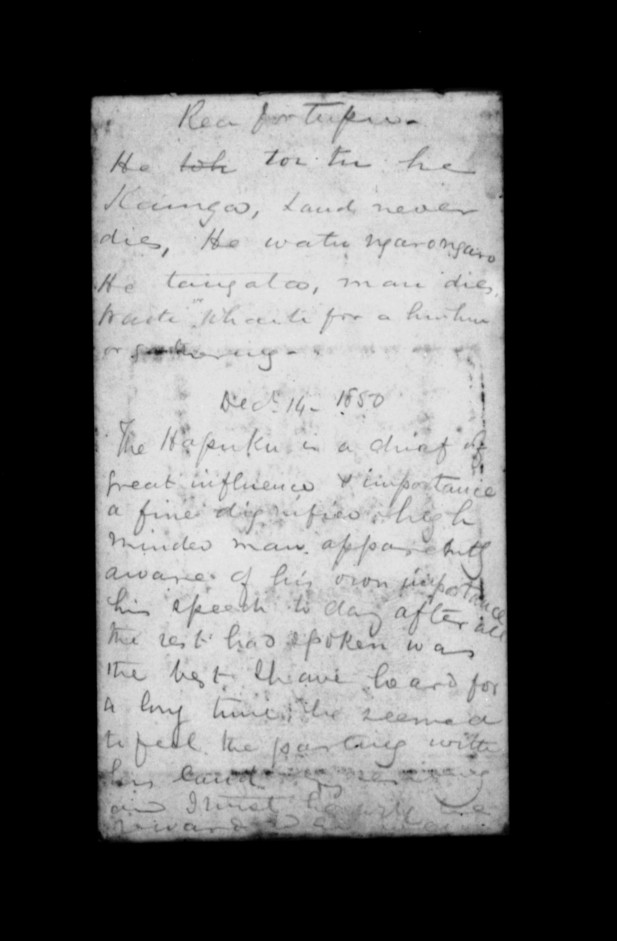 Rea for tupu.
He toh toi tu he
Kainga, Land never
dies, He watu ngarongaro
He tangata, man dies,
for a
or gathering.
Decr. 14 - 1850
The Hapuku is a chief of
great influence & importance
a fine dignified high
minded man apparently
aware of his own importance
his speech to day after all
the rest had spoken was
the best I have heard for
a long time; he seemed
to feel the parting with
his land
I trust he will be